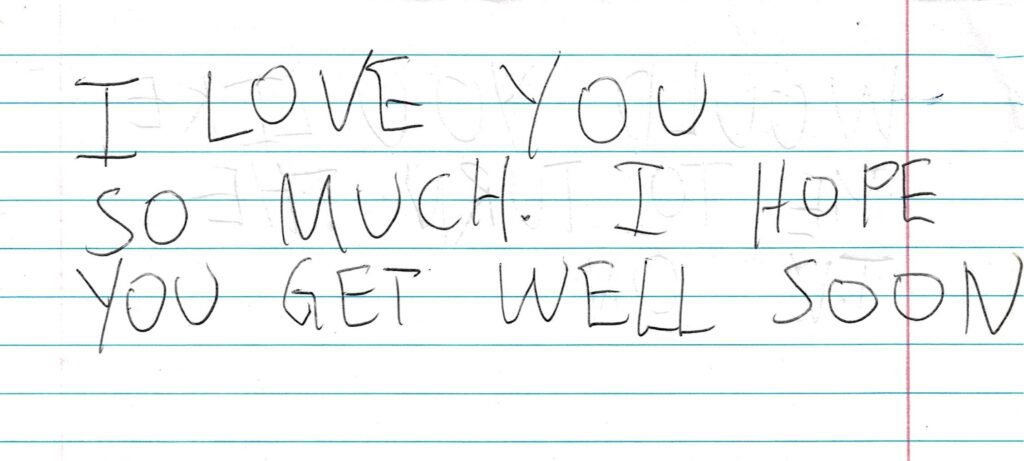 I LOVE YOU
SO MUCH. I HOPE
YOU GET WELL SOON